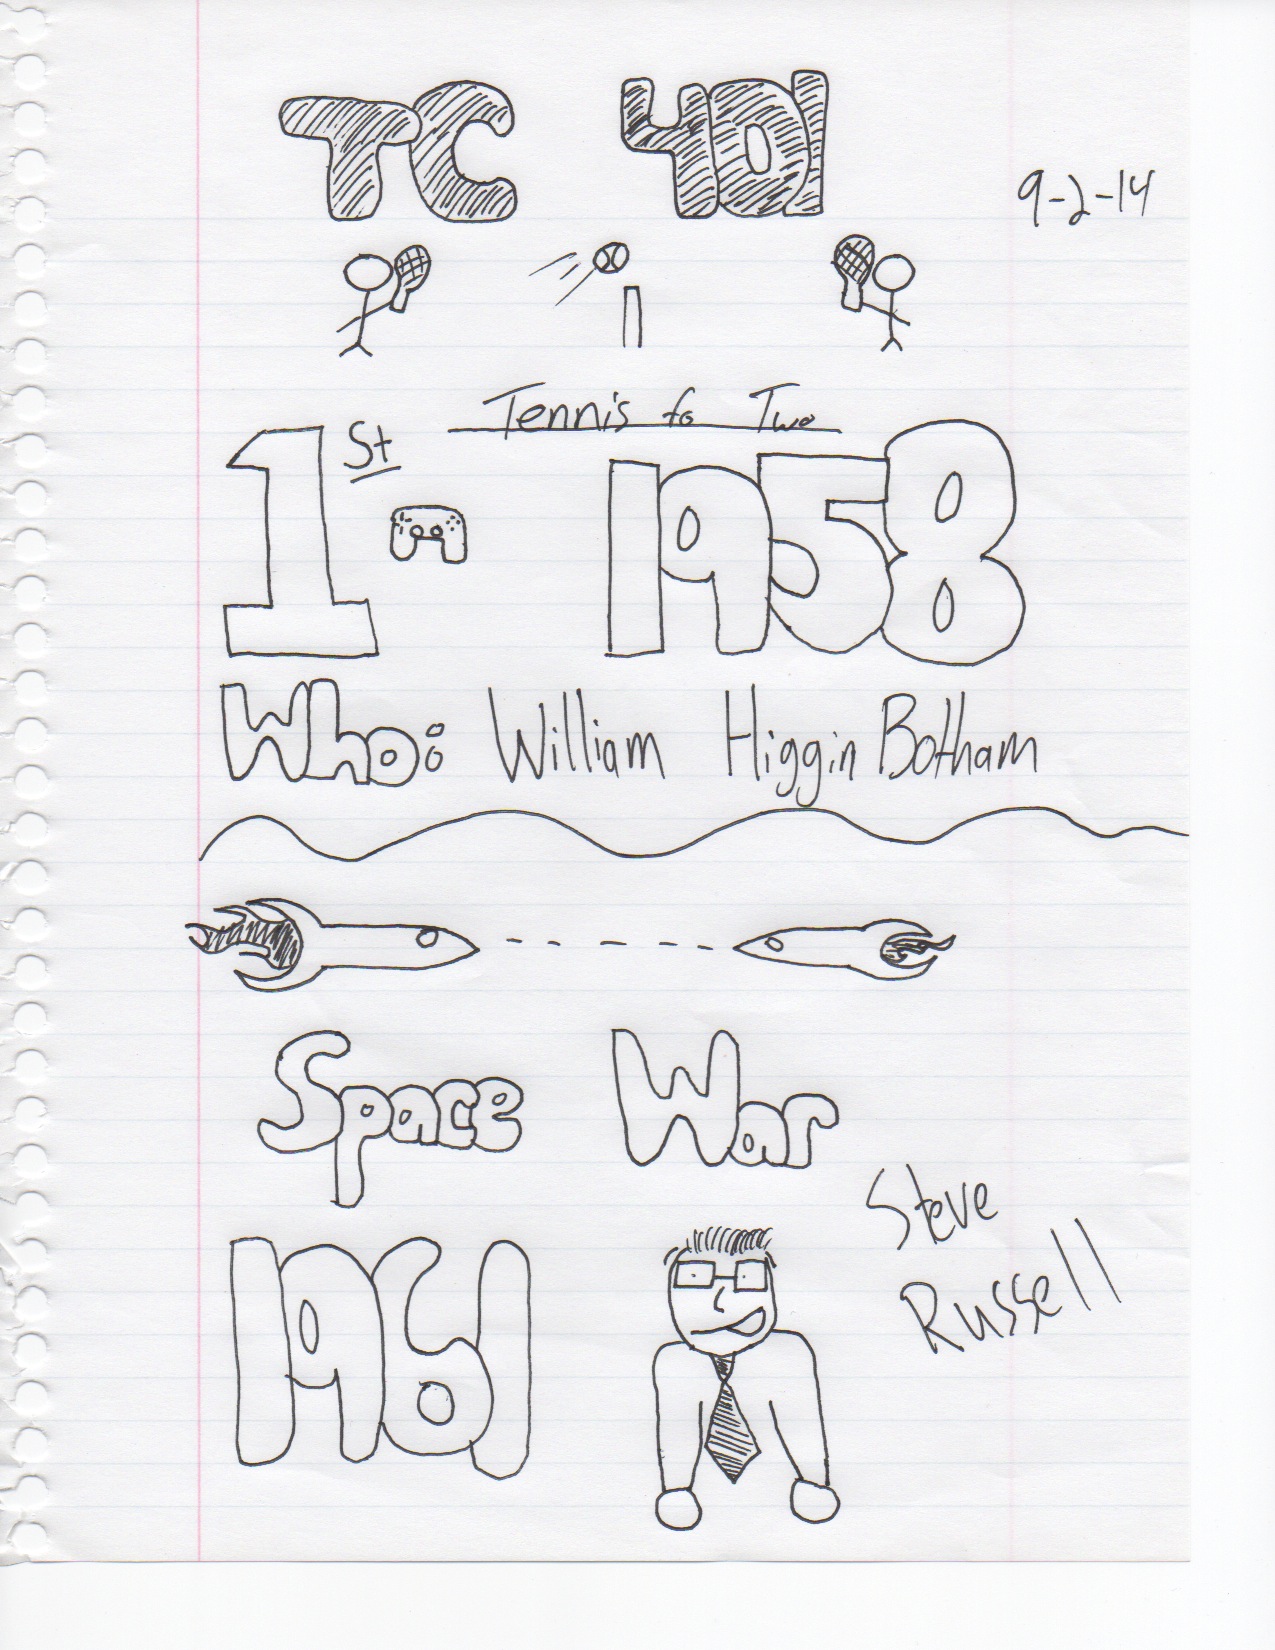 TC 401
9-2-14
Tennis for Two
1st 1958
Who: William HigginBotham
Space War
Steve
Russell
1961